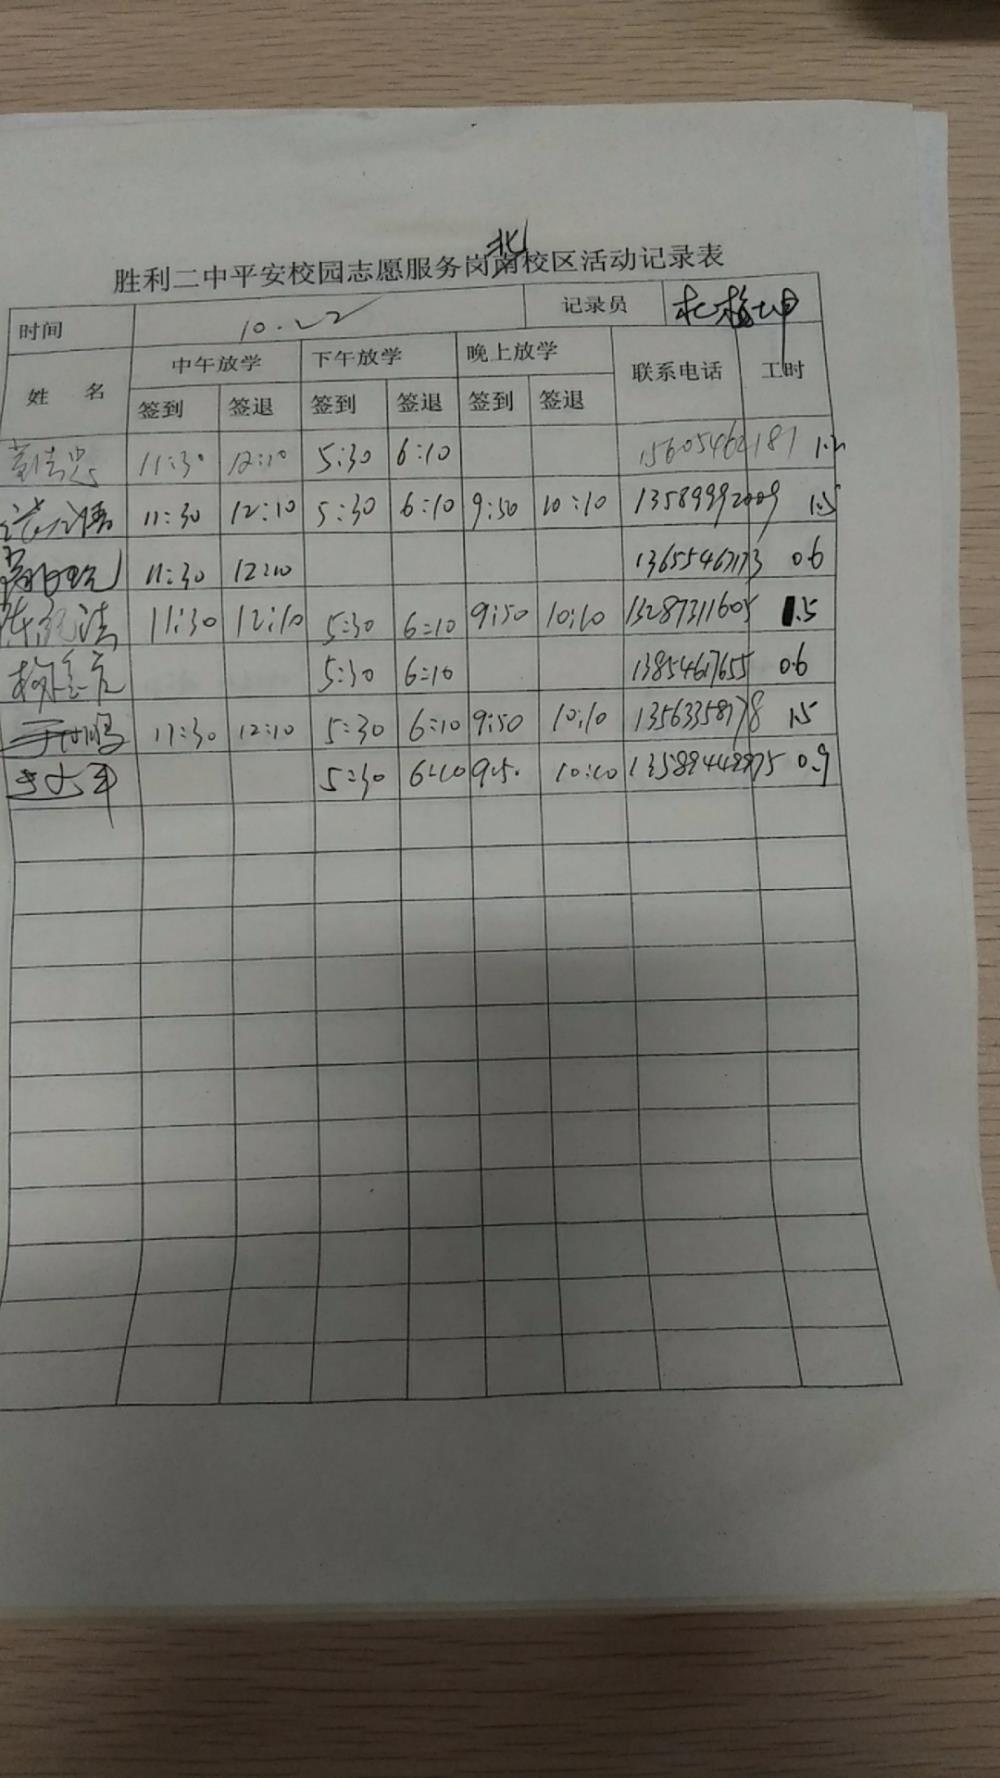 胜利二中平安校园志愿服务岗南校区活动记录表
北
时间 10.22 记录员
姓 名 中午放学 下午放学 晚上放学 联系电话 工时
签到 签退 签到 签退 签到 签退
11:30 12:10 5:30 6:10 15605462181 1.2
11:30 12:10 5:30 6:10 9:50 10:10 13589992009 1.5
11:30 12:10 13655467173 0.6
11:30 12:10 5:30 6:10 9:50 10:10 13287311605 1.5
5:30 6:10 13854617655 0.6
11:30 12:10 5:30 6:10 9:50 10:10 13563358178 1.5
5:30 6:10 10:10 0.9